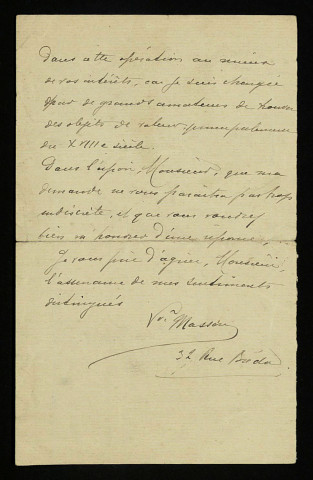 Dans cette opération au mieux
de vos intérêts, car je suis chargée
par de grands amateurs de trouver
des objets de valeur principalement
du XVIIIe siècle.
Dans l'espoir, Monsieur, que ma
demande ne vous paraîtra pas trop
indiscrète, et que vous voudrez
bien m'honorer d'une réponse,
Je vous prie d'agréer, Monsieur,
l'assurance de mes sentiments
distingués
Masson
32 Rue Bréda